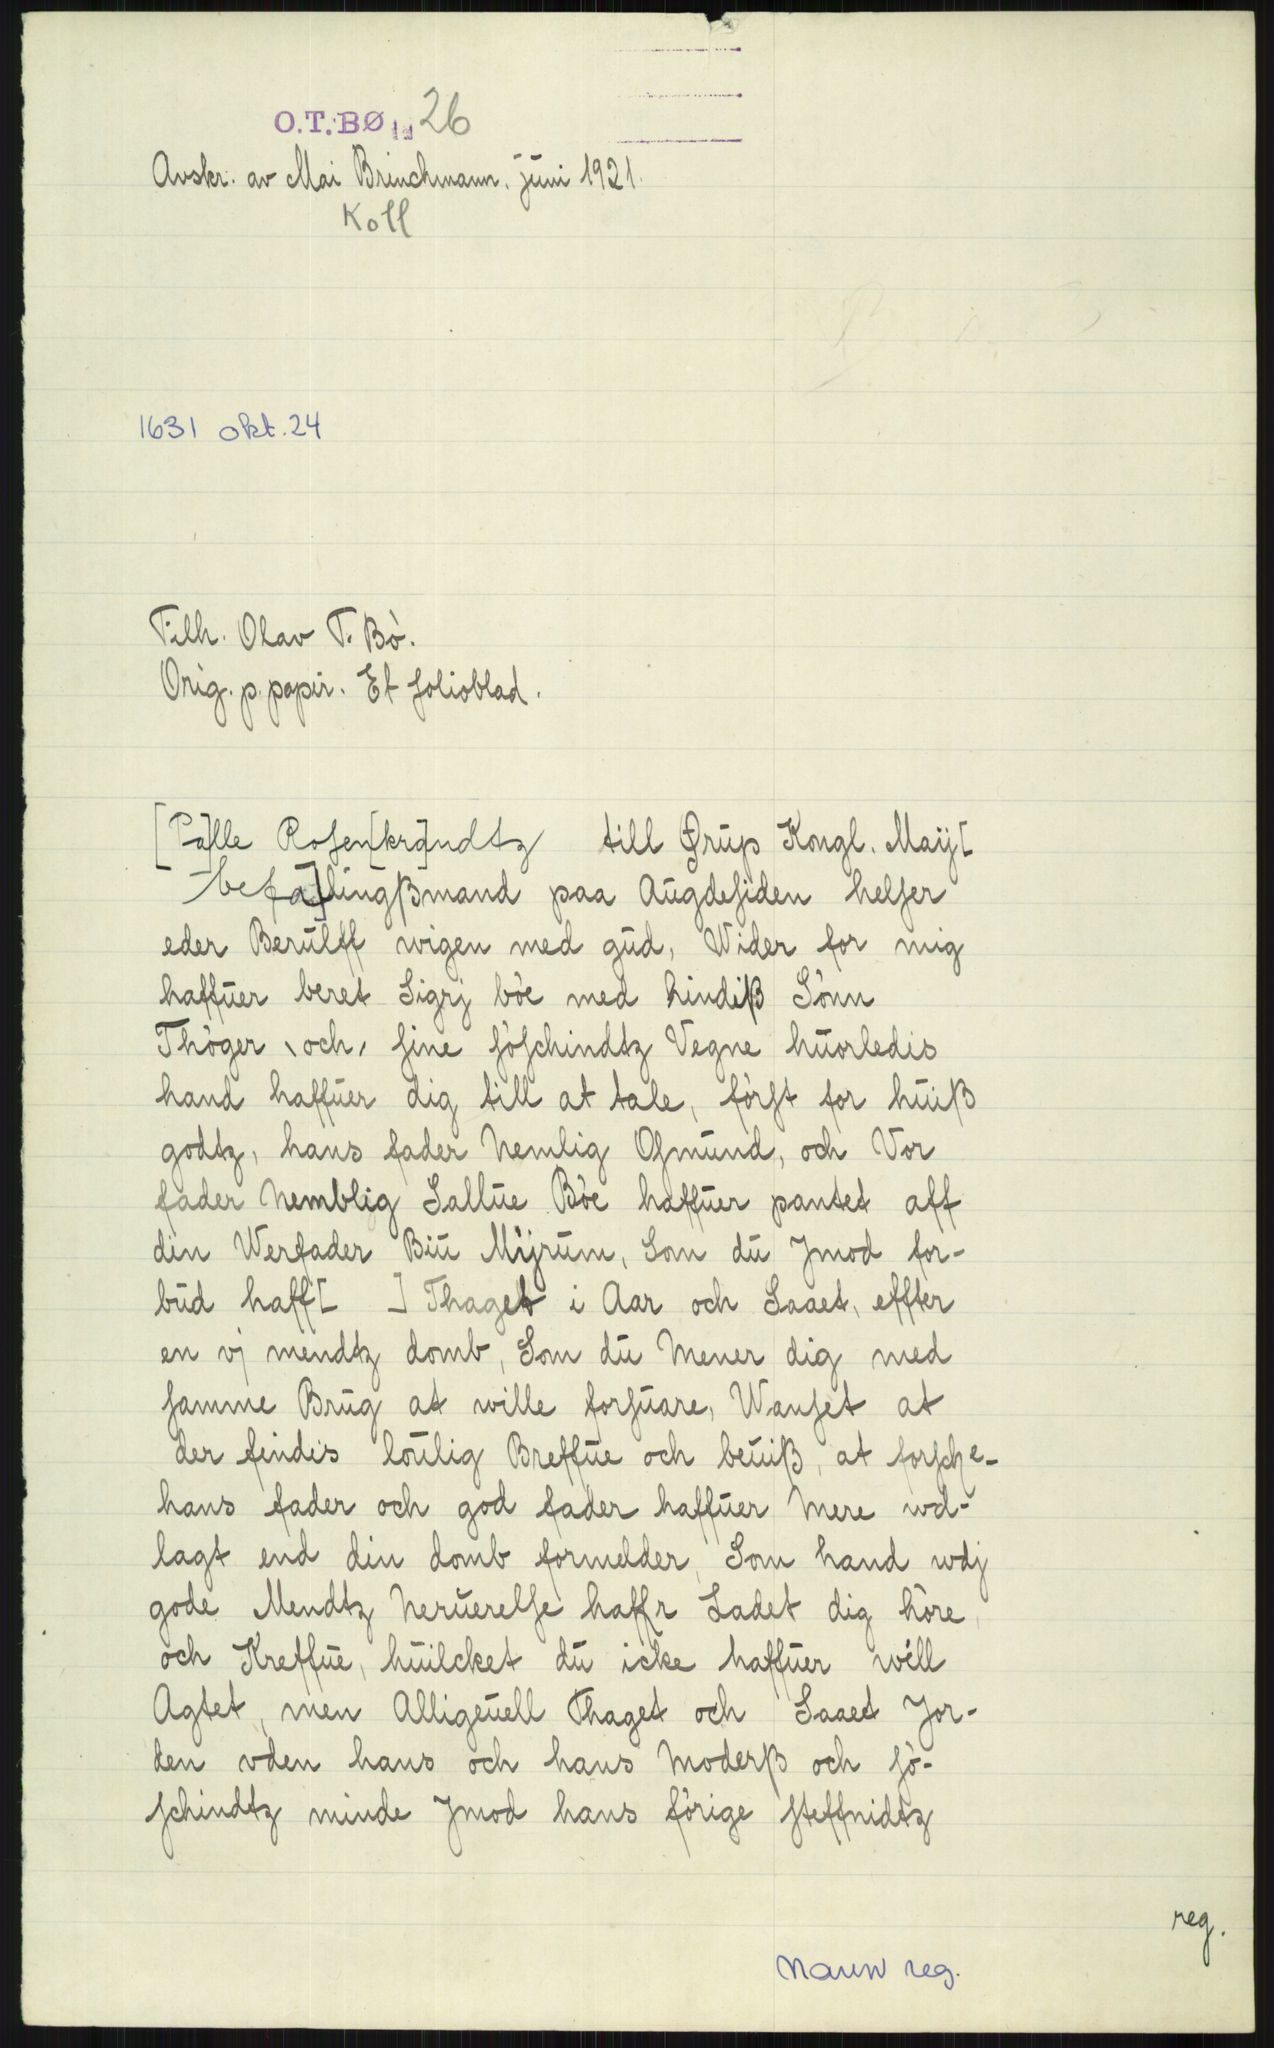 O.T.BØ 1d 26
Avskr. av Mai Brinchmann. juni 1921.
Koll
1631 okt. 24
Tilh. Olav T. Bò.
Orig. p. papir. Et folioblad.
[Pa]lle Rosen[kra]ndtz till Ørup Kongl. Maij[
befa]lingßmand paa Augdesiden helser
eder Berulff wigen med gud, Wider for mig
haffuer beret Sigrj bòe med hindiß Sònn
Thòger \och/ sine sòschindtz Vegne huorledis
hand haffuer dig till at tale, fòrst for huiß
godtz, hans fader Nemlig Osmund, och Vor
fader Nemblig Sallue Bòe haffuer pantet aff
din Werfader Biu Mijrum, Som du Jmod for-
bud haff[ ] Thaget i Aar och Saaet, effter
en vj mendtz domb, Som du Mener dig med
samme Brug at wille forsuare, Wanset at
der findis loulig Breffue och beuiß, at forsche-
hans fader och god fader haffuer Mere wd-
lagt end din domb formelder, Som hand wdj
gode Mendtz Neruerelse haffr Ladet dig hòre,
och Kreffue, huilcket du icke haffuer wéll
Agtet, men Alligeuell Thaget och Saaet Jor-
den vden hans och hans Moderß och sò-
schindtz minde Jmod hans fòrige steffnidtz
reg.
Navn reg.